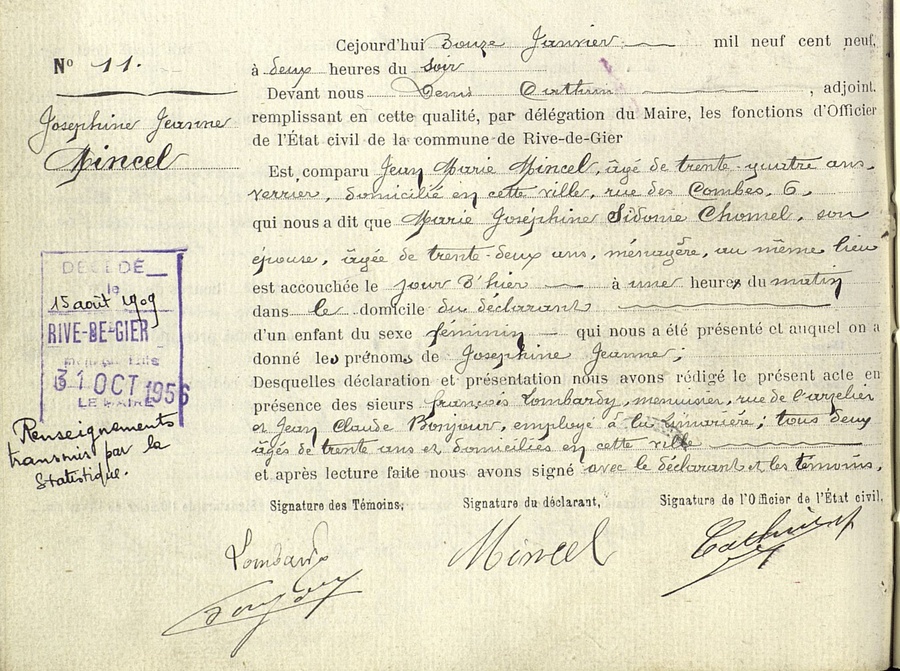 Cejourd'hui Douze Janvier mil neuf cent neuf,
Nº 11.
à deux heures du soir
Devant nous Denis , adjoint,
remplissant en cette qualité, par délégation du Maire, les fonctions d'Officier
de l'État civil de la commune de Rive-de-Gier
Joséphine Jeanne
Mincel
Est comparu Jean Marie Mincel, âgé de trente-quatre ans,
verrier, domicilié en cette ville, rue des Combes, 6,
qui nous a dit que Marie Joséphine Sidonie Chomel, son
épouse, âgée de trente-deux ans, ménagère, au même lieu
est accouchée le jour d'hier à une heure du matin
dans le domicile du déclarant
d'un enfant du sexe féminin qui nous a été présenté et auquel on a
donné les prénoms de Joséphine Jeanne;
Desquelles déclaration et présentation nous avons rédigé le présent acte en
présence des sieurs françois Lombardy, menuisier, rue de
et Jean Claude Bonjour, employé à la ; tous deux
âgés de trente ans et domiciliés en cette ville
et après lecture faite nous avons signé avec le déclarant et les témoins.
DÉCÉDÉ
le
15 août 1909
RIVE-DE-GIER
31 OCT 1956
LE MAIRE
Renseignements
transmis par la
Statistique.
Signature des Témoins, Signature du déclarant, Signature de l'Officier de l'État civil,
Lombardy Mincel